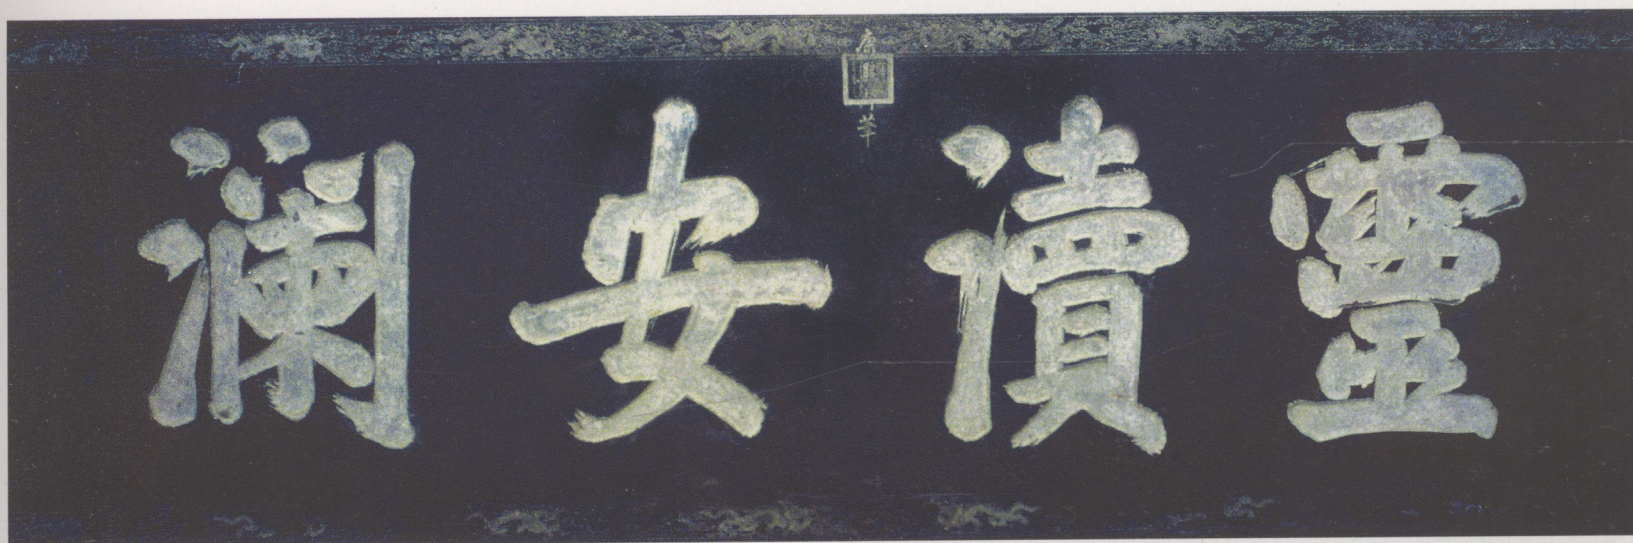 靈瀆安瀾